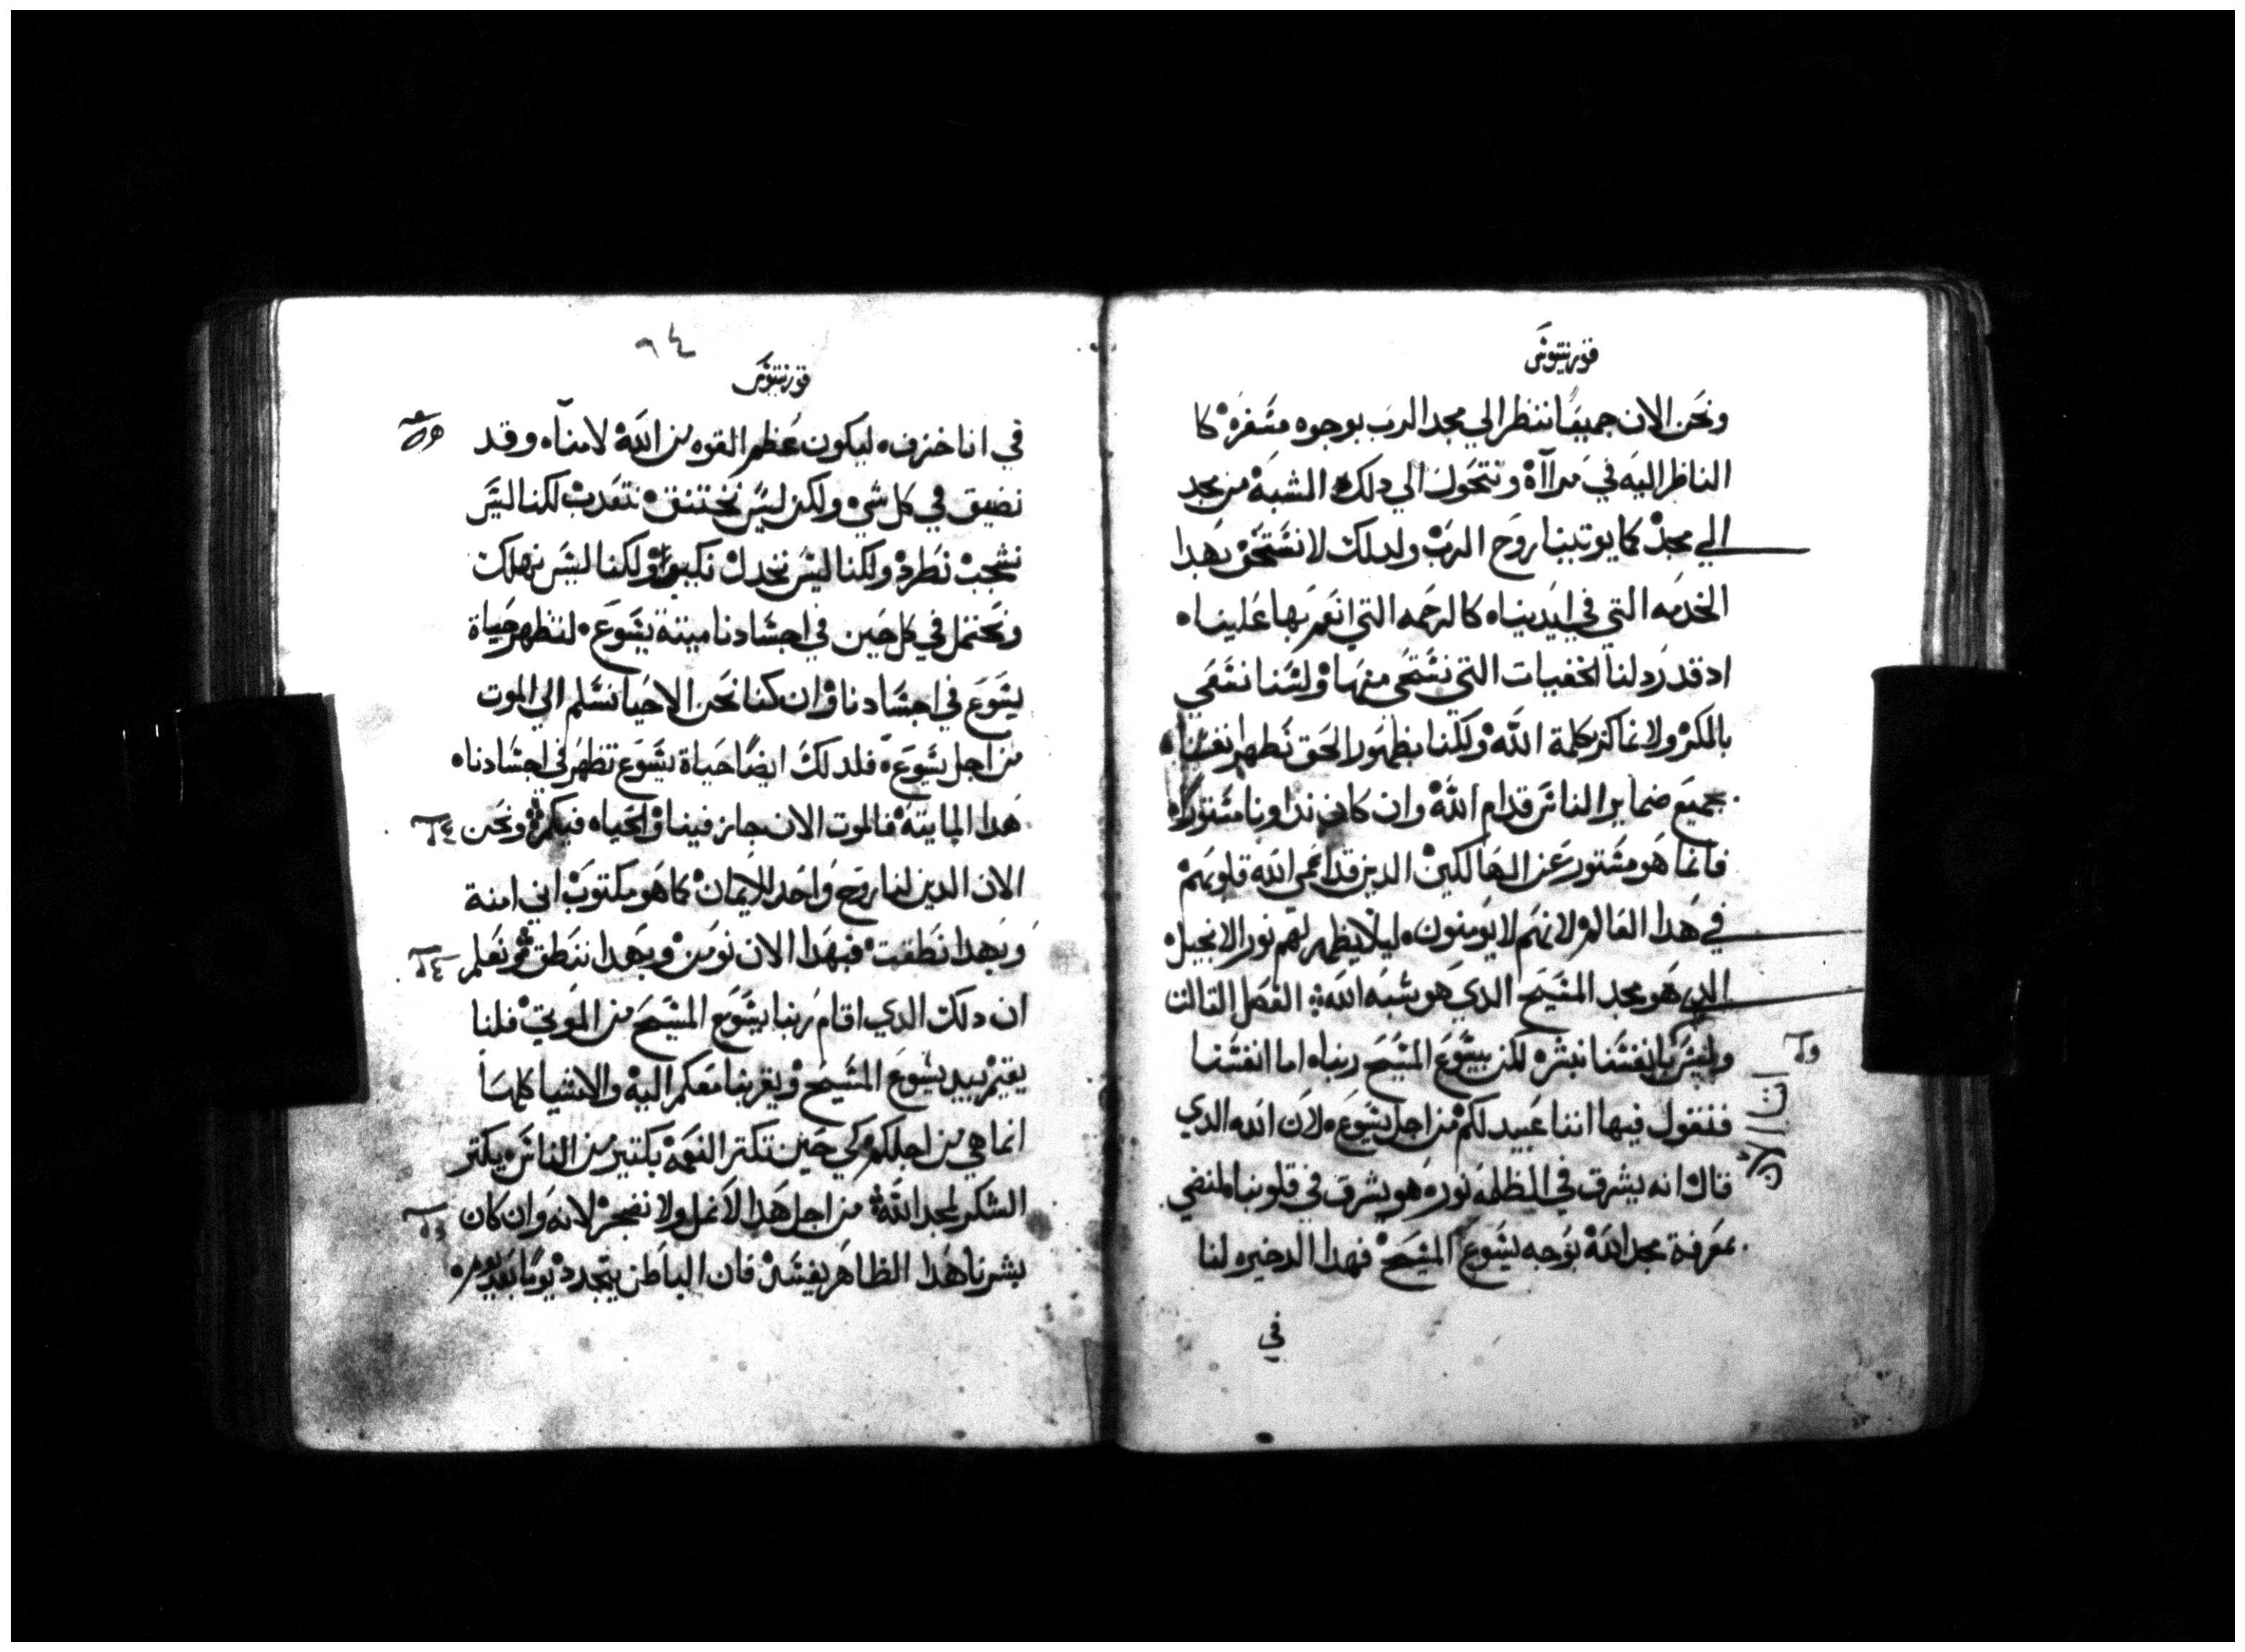 قورنتيوس
ونحن الان جميعًا ننظر الي مجد الرب بوجوه مسفره كا
الناظر اليه في مرآاة ونتحول الي دلك الشبه من مجد
الي مجد كما يوتينا روح الرب ولدلك لا نستحق بهدا
الخدمه التي في ايدينا كالرحمه التي انعم بها علينا
ادقد رد لنا الخفيات التي نستحى منها ولسنا نسعي
بالمكر ولا نماكر بكلمة الله ولكننا بظهور الحق نظهر
بجميع ضماير الناس قدام الله وان كان مستورًا
فانما هو مستور عن الهالكين الدين قد اعمى الله قلوبهم
في هدا العالم لانهم لا يومنون ليلا يظهر لهم نور الانجيل
الدي هو مجد المسيح الدي هو شبه الله الفصل التالت
وليس بانفسنا نبشر لكن بيسوع المسيح ربنا اما انفسنا
فنقول فيها اننا عبيد لكم من اجل يسوع لان الله الدي
قال انه يشرق في الظلمة نوره هو يشرق في قلوبنا لمنضي
بمعرفة مجد الله بوجه يسوع المسيح فهدا الدخيره لنا
في
٩٤
قورنتيوس
في انا خزف ليكون عظم القوه من الله لا منا وقد
نضيق في كل شي ولكن ليس نختنق نتعدب لكنا ليس
نشجب نطرد ولكنا ليس نخدل نكبوا ولكنا ليس نهلك
ونحتمل في كل حين في اجسادنا ميتة يسوع لتظهر حياة
يسوع في اجسادنا وان كنا نحن الاحيا نسلم الي الموت
من اجل يسوع فلدلك ايضًا حياة يسوع تظهر في اجسادنا
هدا المايته فالموت الان جايز فينا والحياه فيكم ونحن
الان الدين لنا روح واحد للايمان كما هو مكتوب اني امنة
وبهدا نطقت فبهدا الان نومن وبهدا ننطق ونعلم
ان دلك الدي اقام ربنا يسوع المسيح من الموتي فلنا
يقيم بيد يسوع المسيح ويقربنا معكم اليه والاشيا كلها
انما هي من اجلكم كي حين تكتر النعمه بكتير من الناس يكتر
الشكر لمجد الله من اجل هدا لا نمل ولا نضجر لانه وان كان
بشرنا هدا الظاهر يفسد فان الباطن يتجدد يومًا بعد يوم